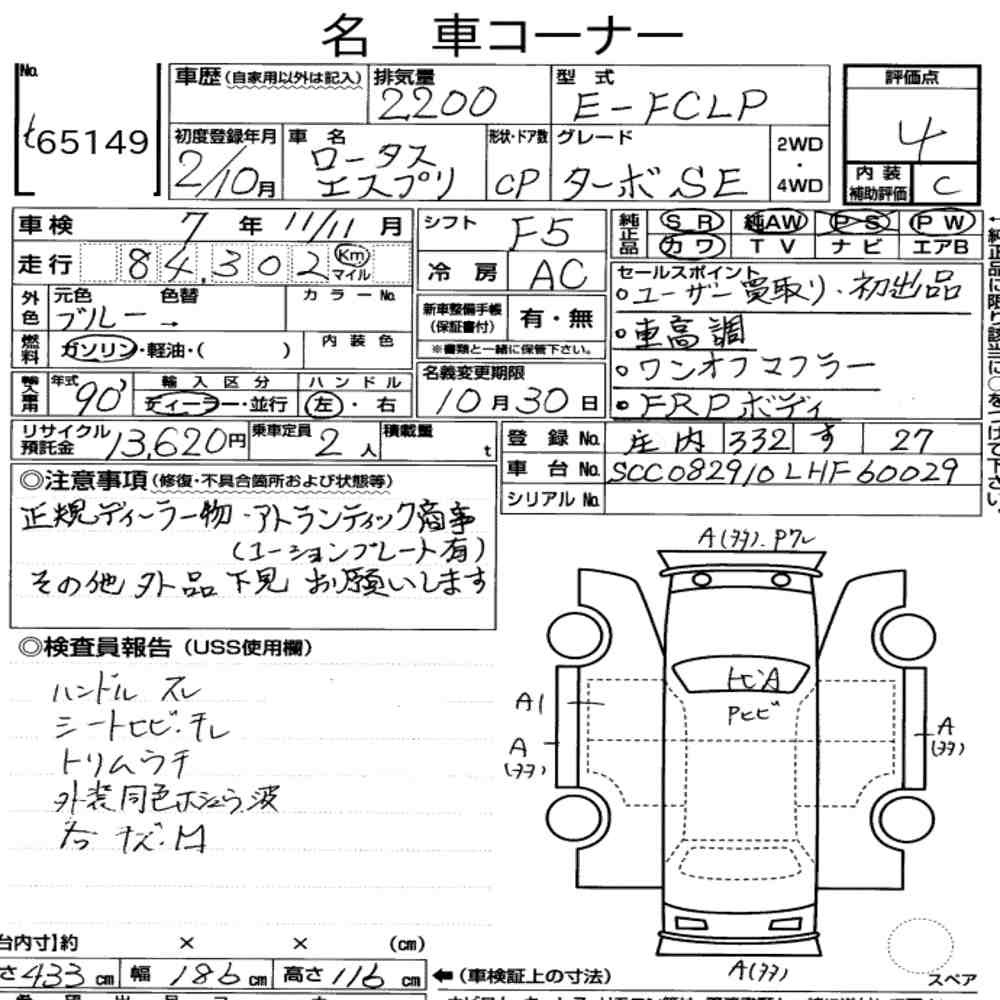 名 車コーナー
No.
t65149
車歴(自家用以外は記入)
排気量
2200
型式
E-FCLP
評価点
4
初度登録年月
2/10月
車名
ロータス
エスプリ
形状・ドア数
CP
グレード
ターボSE
2WD
・
4WD
内装
補助評価
C
車検 7年 11/11月
走行 84,302 Km
マイル
シフト
F5
冷房
AC
純正品
SR 純AW PS PW
カワ TV ナビ エアB
セールスポイント
○ユーザー買取り・初出品
○車高調
○ワンオフマフラー
●FRPボディ
外色
元色
色替
カラーNo.
ブルー→
燃料
ガソリン・軽油・( )
内装色
新車整備手帳
(保証書付)
有・無
※書類と一緒に保管下さい。
輸入車用
年式
90'
輸入区分
ディーラー・並行
ハンドル
左・右
名義変更期限
10月30日
リサイクル
預託金
13,620円
乗車定員
2人
積載量
t
登録No. 庄内 332 す 27
車台No. SCC082910LHF60029
シリアルNo.
◎注意事項(修復・不具合箇所および状態等)
正規ディーラー物・アトランティック商事
(コーションプレート有)
その他 外品 下見 お願いします
◎検査員報告(USS使用欄)
ハンドル スレ
シートヒビ・チレ
トリムウチ
外装同色ホシュウ,波
キズ・M
A(ララ).Pワレ
トビA
Pヒビ
A1
A
(ララ)
A
(ララ)
A(ララ)
台内寸】約 × × (cm)
さ433cm 幅186cm 高さ116cm
←(車検証上の寸法)
スペア
←純正品に限り該当に○をつけて下さい。